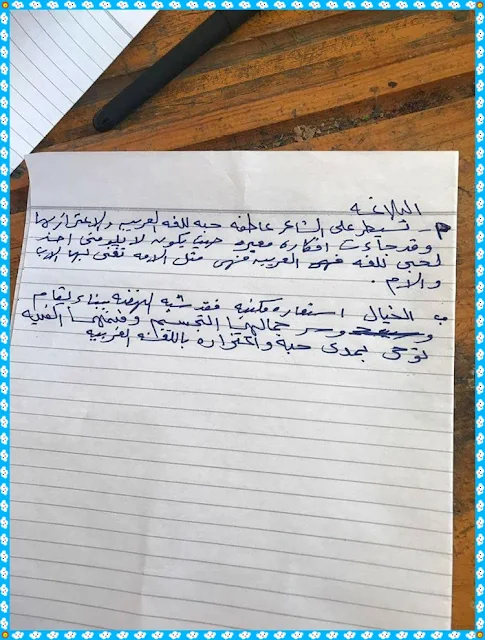 البلاغه
م - تسيطر على الشاعر عاطفة حبه للغه العربيه والاعتزاز بها
وقد جاءت افكاره معبره حيث يكونه لا يلومنى احد
لحبى للغه العربيه فهى مثل الامه تغنى بها الاب
والام .
ب الخيال استعاره مكنيه فقد شبه النهضه ببناء يقام
وسر جمالها التجسيم وقيمتها الفنيه
توحى بمدى حبه واعتزازه باللغه العربيه